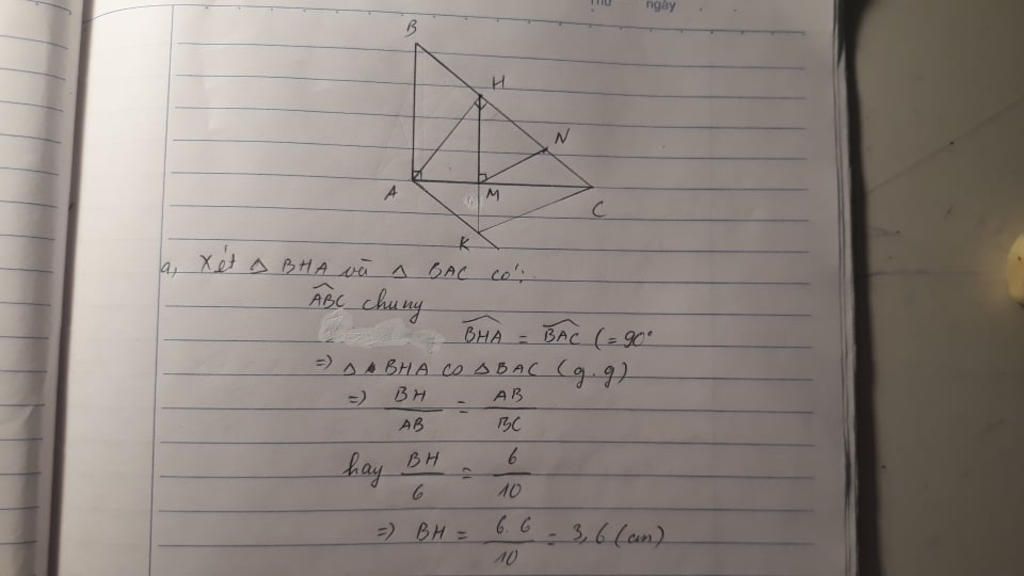 Thứ ngày
B
H
N
A M C
K
a, Xét △ BHA và △ BAC có:
\widehat{ABC} chung
\widehat{BHA} = \widehat{BAC} (= 90°
=> △ BHA ∽ △ BAC (g.g)
=> BH/AB = AB/BC
hay BH/6 = 6/10
=> BH = 6.6/10 = 3,6 (cm)